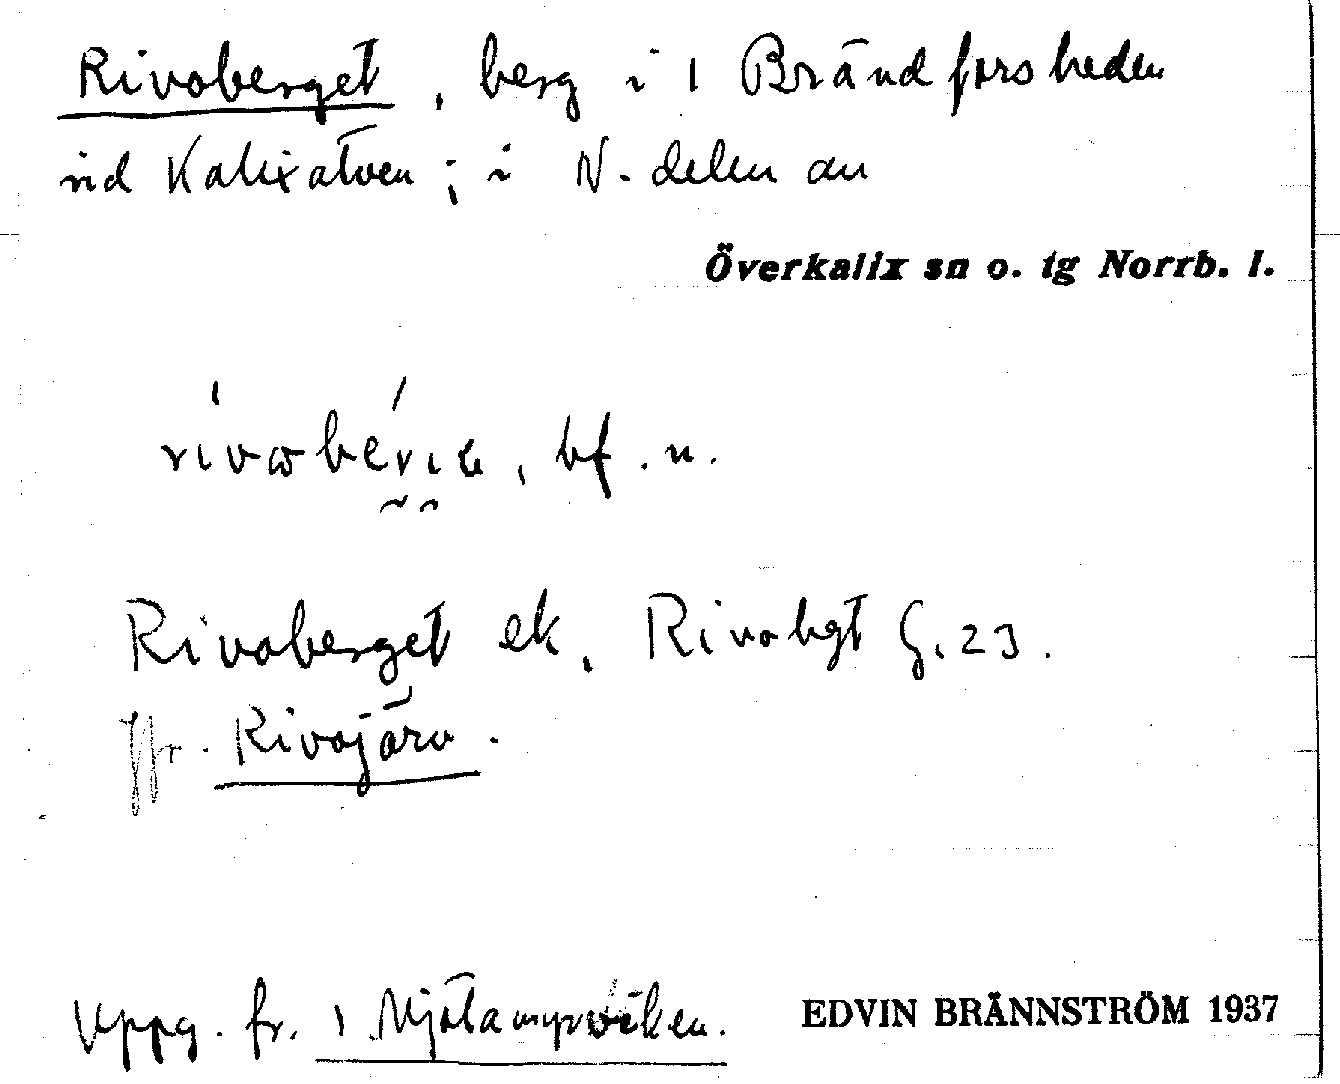 Rivoberget, berg i 1 Brändforsheden
vid Kalixälven; i N. delen av
Överkalix sn o. tg Norrb. l.
bf. n.
Rivoberget ek, Rivobgt G. 23.
Jfr. Rivojärv.
Uppg. fr. 1 Mjölamyrviken.
EDVIN BRÄNNSTRÖM 1937